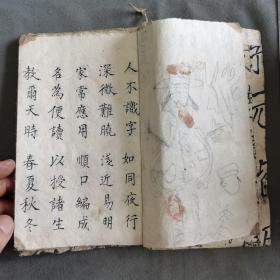 人不識字 如同夜行
深微難曉 淺近易明
家常應用 順口編成
名為便讀 以授諸生
教爾天時 春夏秋冬